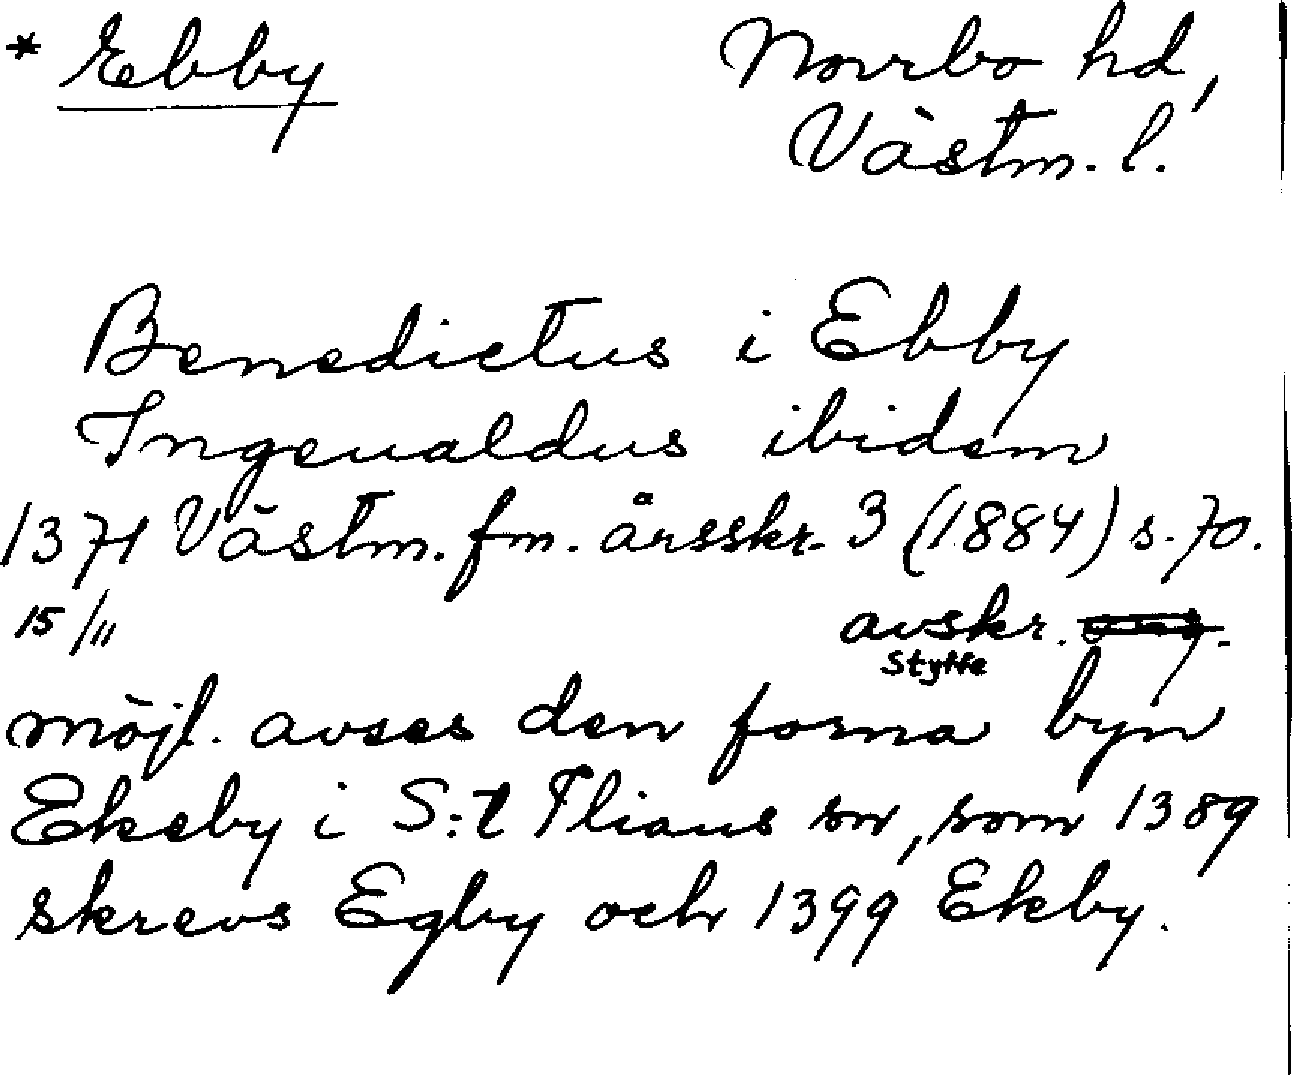 * Ebby
Norrbo hd,
Västm. l.
Benedictus i Ebby
Ingeualdus ibidem
1371 Västm. fm. årsskr. 3 (1884) s. 70.
15/11 avskr.
Styffe
möjl. avses den forna byn
Ekeby i S:t Ilians sn, som 1389
skrevs Egby och 1399 Ekby.